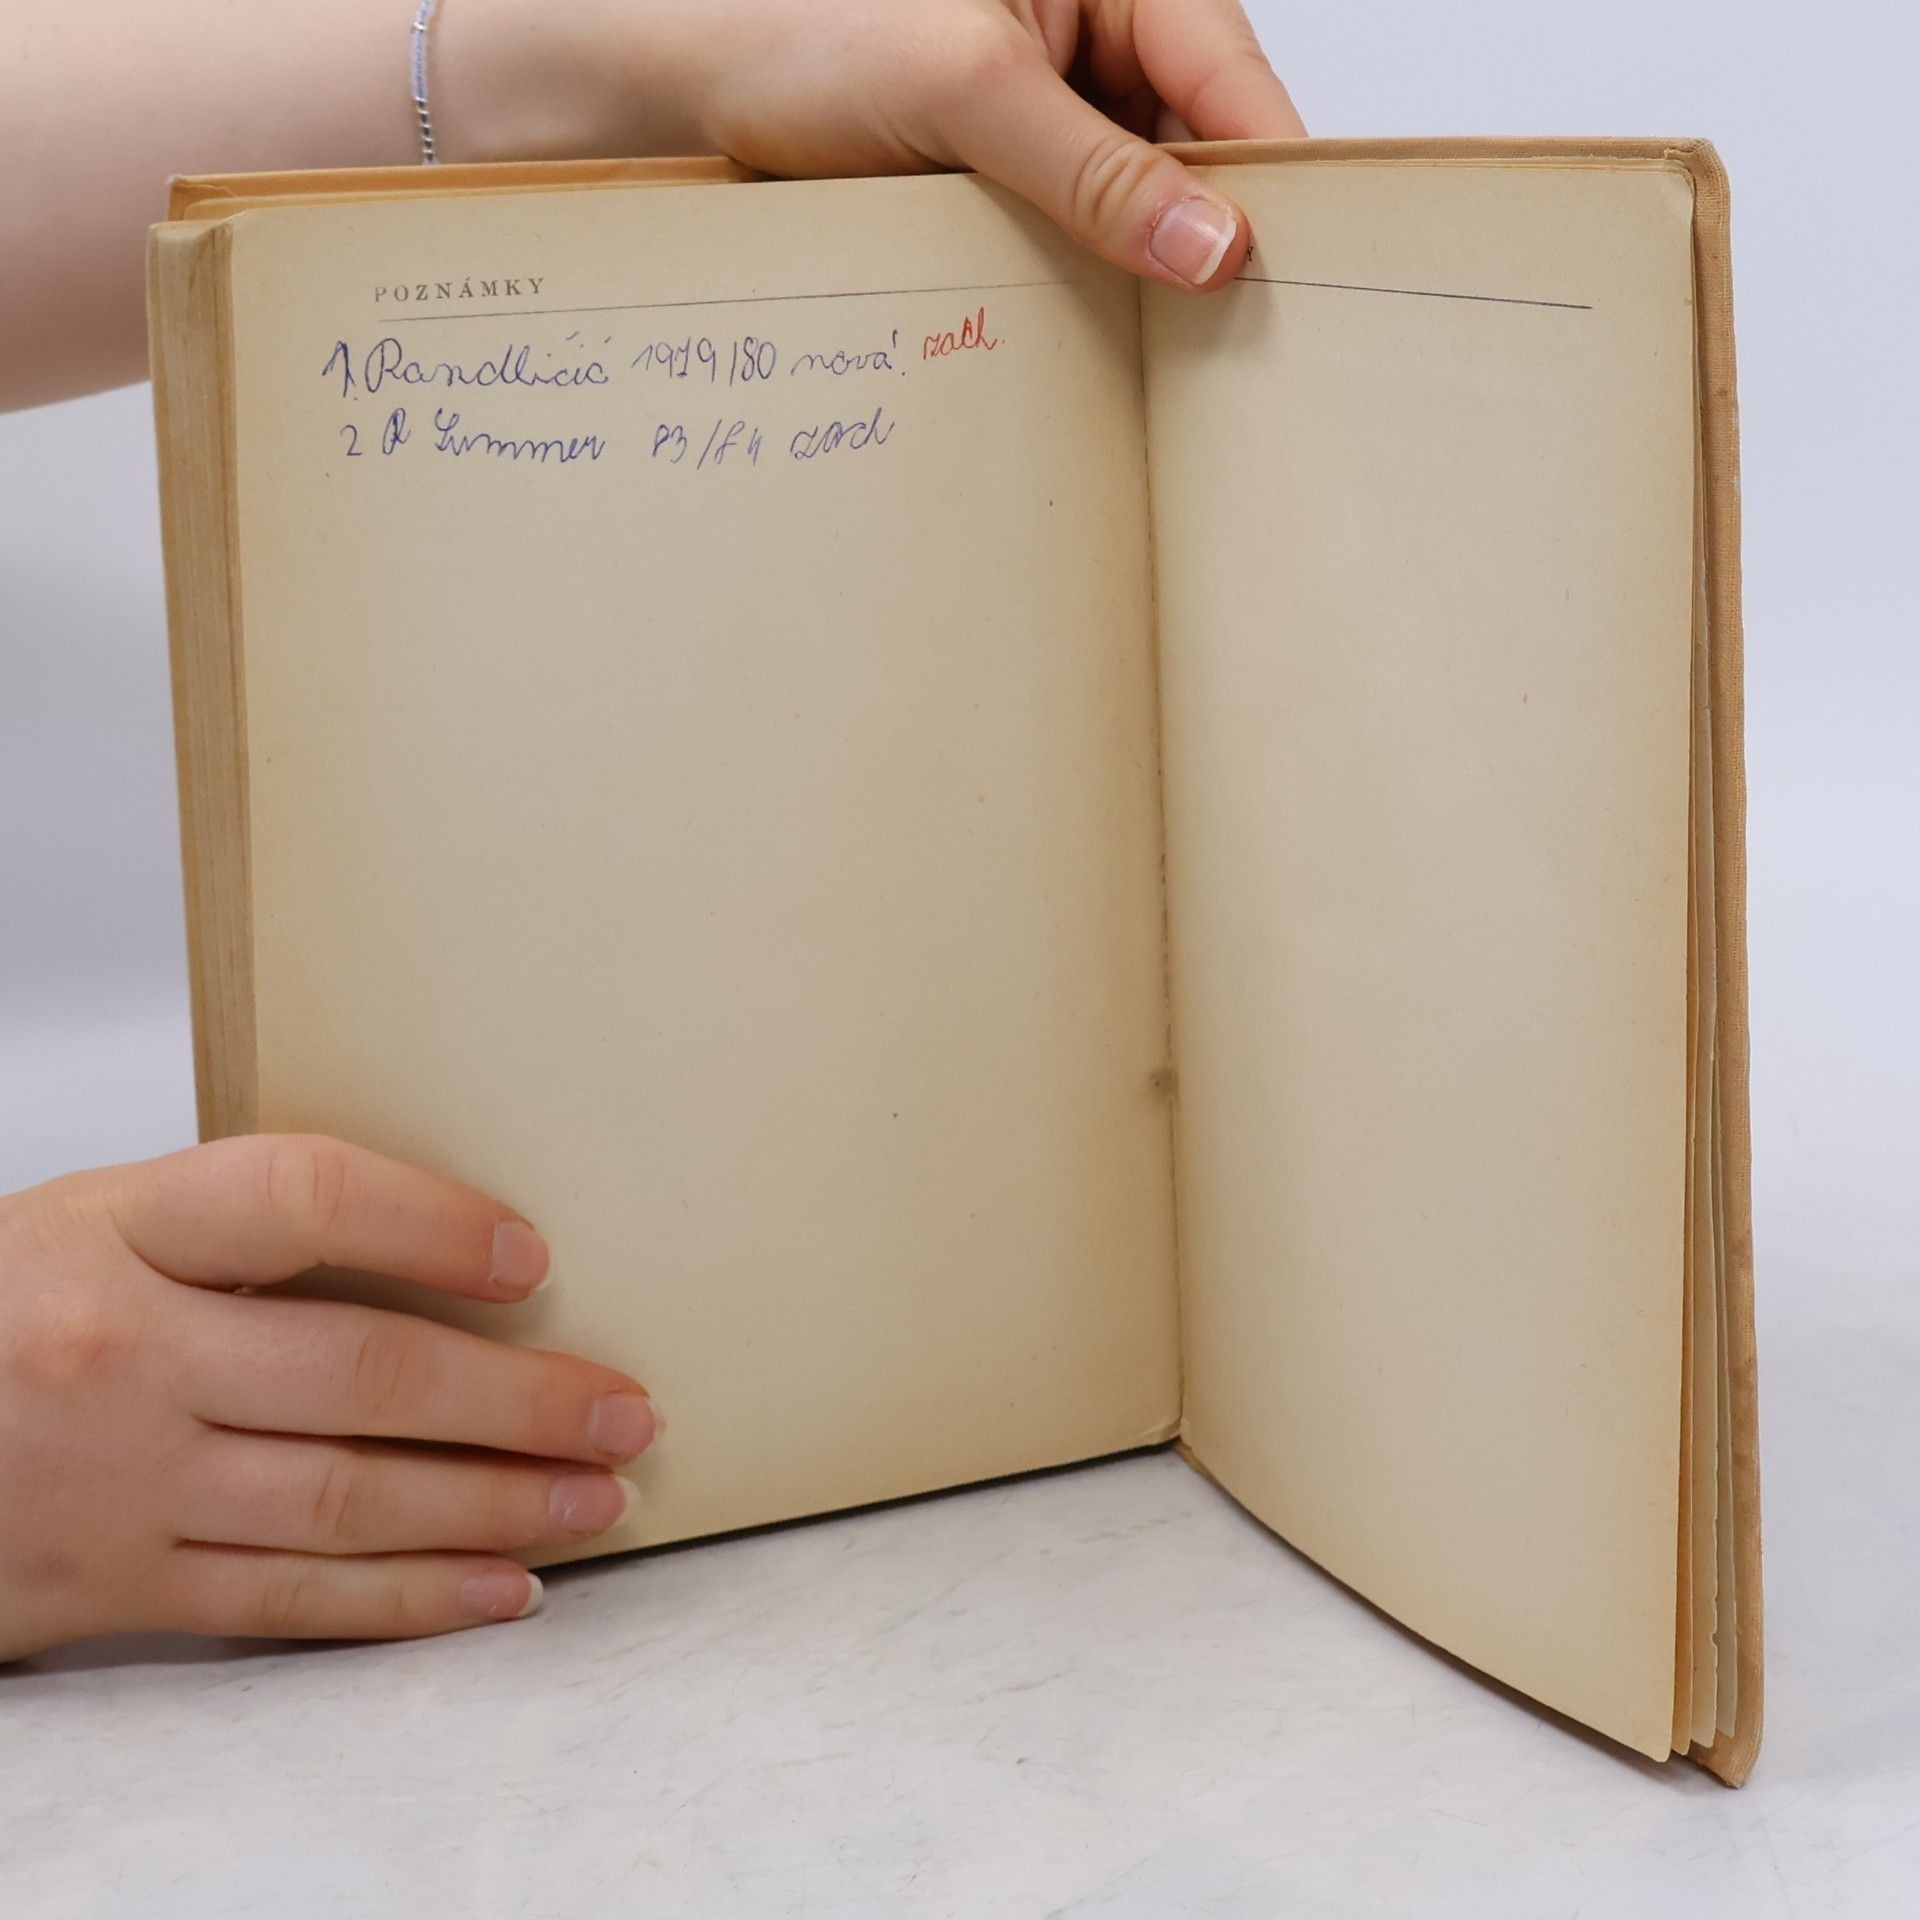 POZNÁMKY
1. Randličić 1979/80 nová. zach.
2 R Summer 83/84 zach
Y